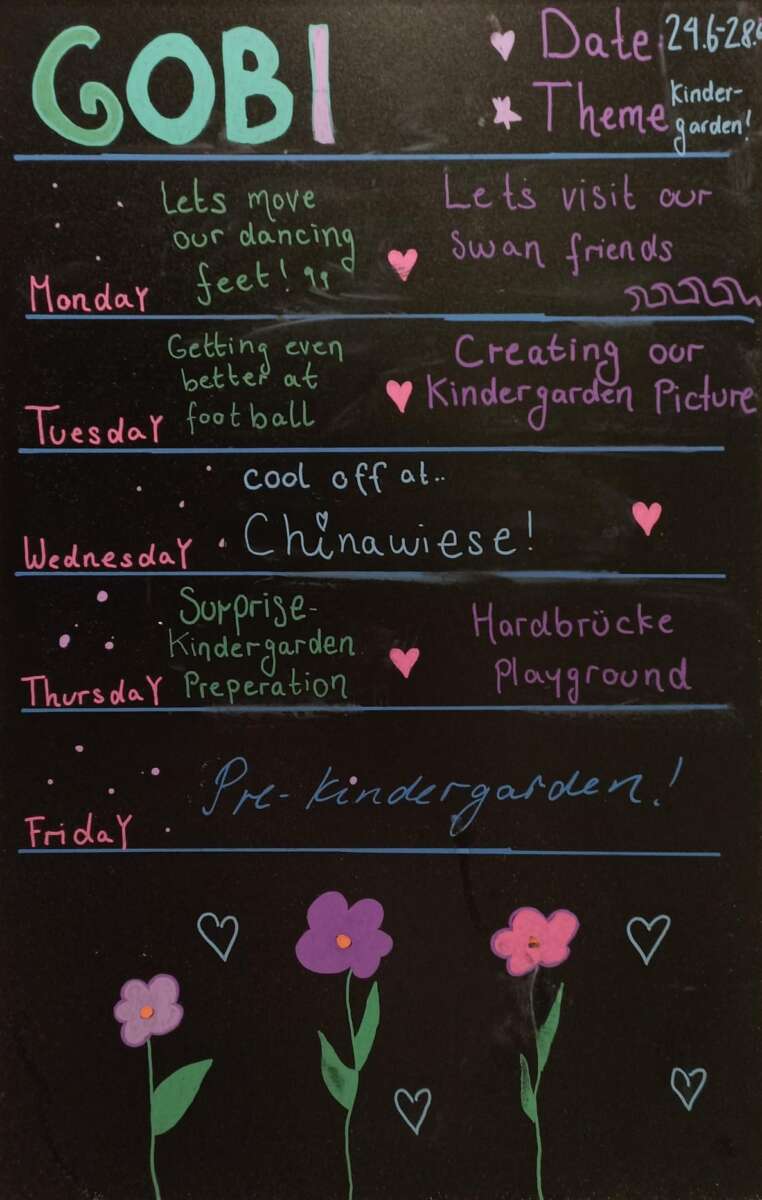 GOBI
Date: 24.6-28.6
Theme Kinder-
garden!
Monday
Lets move
our dancing
feet!
Lets visit our
swan friends
Tuesday
Getting even
better at
football
Creating our
Kindergarden Picture
Wednesday
cool off at..
Chinawiese!
Thursday
Surprise-
Kindergarden
Preperation
Hardbrücke
Playground
Friday
Pre-kindergarden!